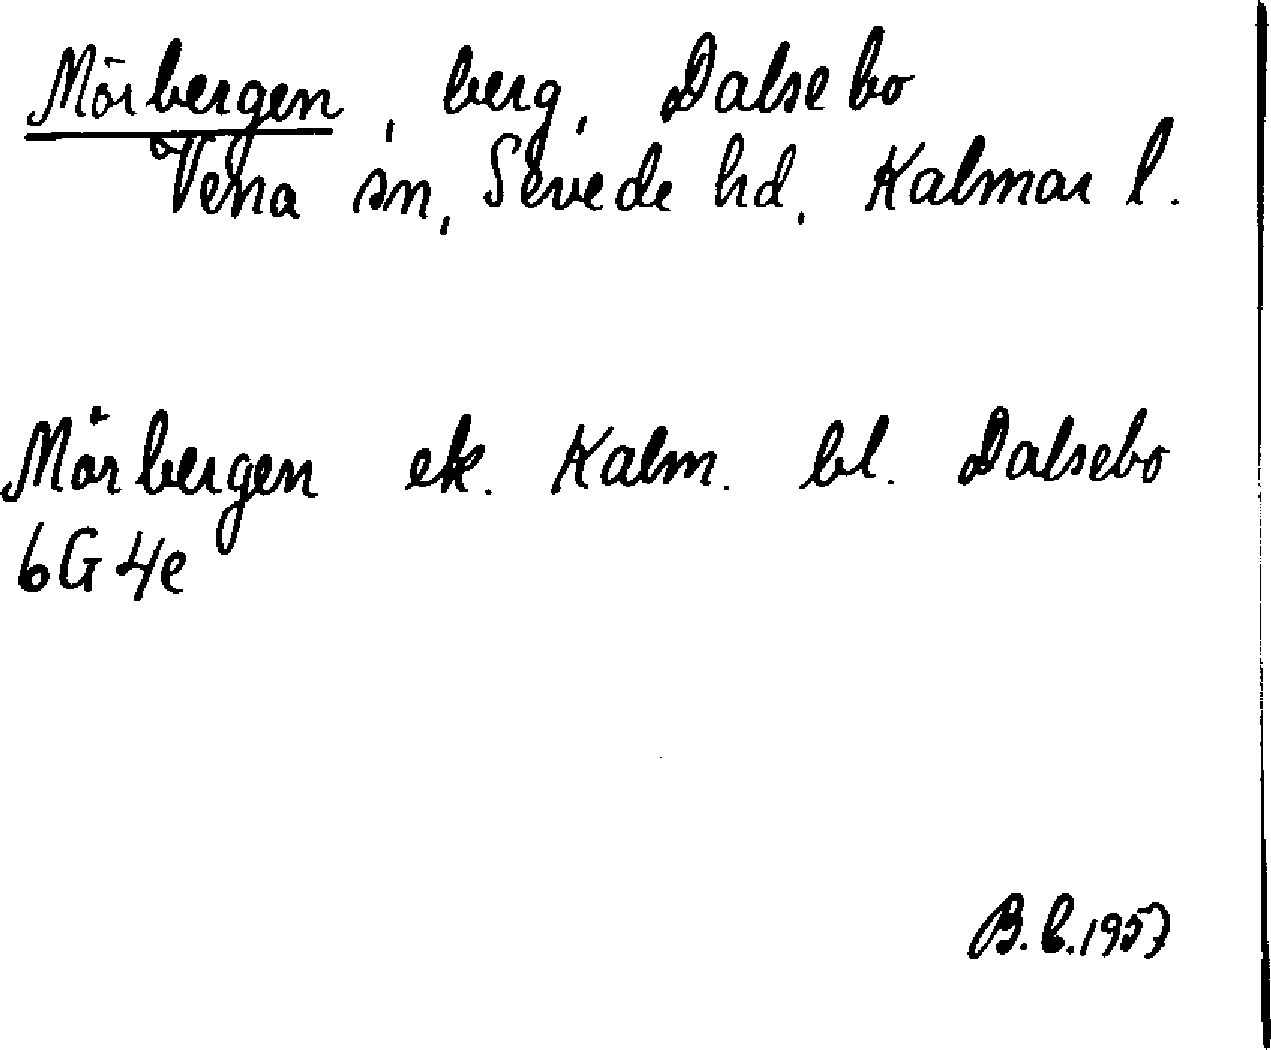 Mörbergen, berg, Dalsebo
Vena sn, Sevede hd, Kalmar l.
Mörbergen ek. Kalm. bl. Dalsebo
6G4e
B. 1957